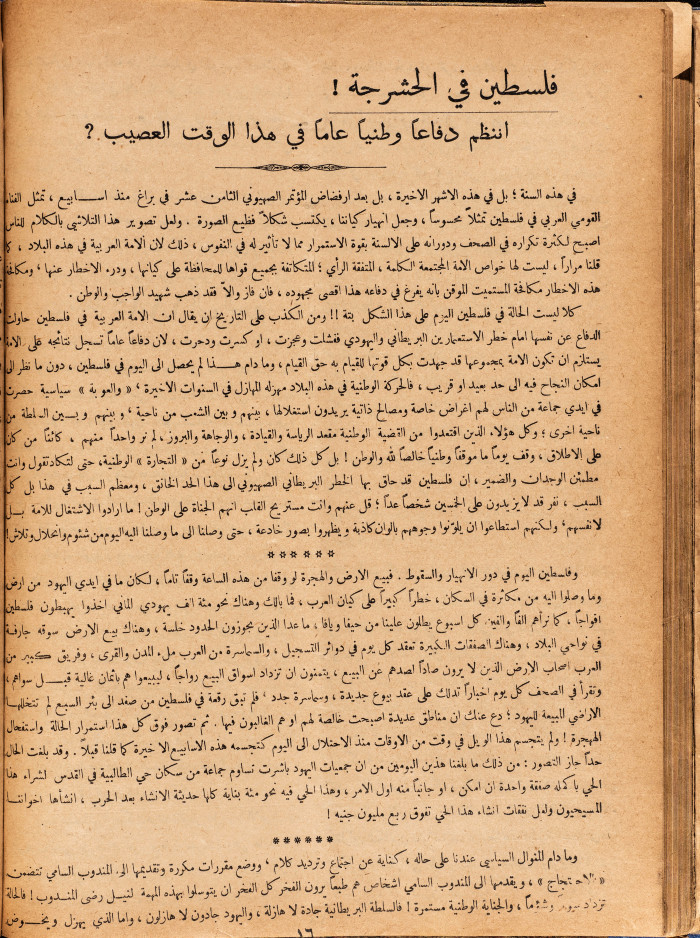 فلسطين في الحشرجة !
اننظم دفاعاً وطنياً عاماً في هذا الوقت العصيب ?
في هذه السنة ؛ بل في هذه الاشهر الاخيرة ، بل بعد ارفضاض المؤتمر الصهيوني الثامن عشر في براغ منذ اسابيع ، تمثل الفناء
القومي العربي في فلسطين تمثلاً محسوساً ، وجعل انهيار كياننا ، يكتسب شكلاً فظيع الصورة . ولعل تصوير هذا التلاشي بالكلام للناس
اصبح لكثرة تكراره في الصحف ودورانه على الالسنة بقوة الاستمرار مما لا تأثير له في النفوس ، ذلك لان الامة العربية في هذه البلاد ،
قلنا مراراً ، ليست لها خواص الامة المجتمعة الكلمة ، المتفقة الرأي ؛ المتكاتفة بجميع قواها للمحافظة على كيانها ، ودرء الاخطار عنها ، ومكافحة
هذه الاخطار مكافحة المستميت الموقن بانه يفرغ في دفاعه هذا اقصى مجهوده ، فان فاز والاّ فقد ذهب شهيد الواجب والوطن .
كلا ليست الحالة في فلسطين اليوم على هذا الشكل بتة !! ومن الكذب على التاريخ ان يقال ان الامة العربية في فلسطين حاولت
الدفاع عن نفسها امام خطر الاستعمارين البريطاني واليهودي ففشلت وعجزت ، او كسرت ودحرت ، لان دفاعاً عاماً تسجل نتائجه على الامة
يستلزم ان تكون الامة بمجموعها قد جهدت بكل قوتها للقيام به حق القيام ، وما دام هذا لم يحصل الى اليوم في فلسطين ، دون ما نظر الى
امكان النجاح فيه الى حد بعيد او قريب ، فالحركة الوطنية في هذه البلاد مهزلة المهازل في السنوات الاخيرة ، « والعوبة » سياسية حصرت
في ايدي جماعة من الناس لهم اغراض خاصة ومصالح ذاتية يريدون استغلالها ، بينهم وبين الشعب من ناحية ، وبينهم وبين السلطة من
ناحية اخرى ؛ وكل هؤلاء الذين اقتعدوا من القضية الوطنية مقعد الرياسة والقيادة ، والوجاهة والبروز ، لم نر واحداً منهم ، كائناً من كان
على الاطلاق ، وقف يوماً ما موقفاً وطنياً خالصاً لله والوطن ! بل كل ذلك كان ولم يزل نوعاً من « التجارة » الوطنية ، حتى لتكاد تقول وانت
مطمئن الوجدان والضمير ، ان فلسطين قد حاق بها الخطر البريطاني الصهيوني الى هذا الحد الخانق ، ومعظم السبب في هذا بل كل
السبب ، نفر قد لا يزيدون على الخمسين شخصاً عداً ؛ قل عنهم وانت مستريح القلب انهم الجناة على الوطن ! ما ارادوا الاشتغال للامة بل
لانفسهم ، ولكنهم استطاعوا ان يلوّنوا وجوههم بالوان كاذبة ويظهروا بصور خادعة ، حتى وصلنا الى ما وصلنا اليه اليوم من شئوم وانحلال وتلاش !
* * * * * *
وفلسطين اليوم في دور الانهيار والسقوط . فبيع الارض والهجرة لو وقفا من هذه الساعة وقفاً تاماً ، لكان ما في ايدي اليهود من ارض
وما وصلوا اليه من مكاثرة في السكان ، خطراً كبيراً على كيان العرب ، فما بالك وهناك نحو مئة الف يهودي الماني اخذوا يهبطون فلسطين
افواجاً ، كما نراهم الفاً والفين كل اسبوع يطلون علينا من حيفا ويافا ، ما عدا الذين يجوزون الحدود خلسة ، وهناك بيع الارض سوقه جارفة
في نواحي البلاد ، وهناك الصفقات الكبيرة تعقد كل يوم في دوائر التسجيل ، والسماسرة من العرب ملء المدن والقرى ، وفريق كبير من
العرب اصحاب الارض الذين لا يرون صاداً لصدهم عن البيع ، يتمنون ان تزداد اسواق البيع رواجاً ، ليبيعوا هم باثمان غالية قبل سواهم ،
ونقرأ في الصحف كل يوم اخباراً تدلك على عقد بيوع جديدة ، وسماسرة جدد ، فلم تبق رقعة في فلسطين من صفد الى بئر السبع لم تتخللها
الاراضي المبيعة لليهود ؛ دع عنك ان مناطق عديدة اصبحت خالصة لهم او هم الغالبون فيها . ثم تصور فوق كل هذا استمرار الحالة واستفحال
الهجرة ! ولم يتجسم هذا الويل في وقت من الاوقات منذ الاحتلال الى اليوم كتجسمه هذه الاسابيع الاخيرة كما قلنا قبلاً . وقد بلغت الحال
حداً جاز التصور : من ذلك ما بلغنا هذين اليومين من ان جمعيات اليهود باشرت تساوم جماعة من سكان حي الطالبية في القدس لشراء هذا
الحي باكمله صفقة واحدة ان امكن ، او جانباً منه اول الامر ، وهذا الحي فيه نحو مئة بناية كلها حديثة الانشاء بعد الحرب ، انشأها اخواننا
المسيحيون ولعل نفقات انشاء هذا الحي تفوق ربع مليون جنيه !
* * * * * *
وما دام المنوال السياسي عندنا على حاله ، كناية عن اجتماع وترديد كلام ، ووضع مقررات مكررة وتقديمها الى المندوب السامي تتضمن
« الاحتجاج » ، ويقدمها الى المندوب السامي اشخاص هم طبعاً يرون الفخر كل الفخر ان يتوسلوا بهذه المهمة لنيل رضى المندوب ! فالحالة
تزداد وشؤماً ، والجناية الوطنية مستمرة ! فالسلطة البريطانية جادة لا هازلة ، واليهود جادون لا هازلون ، واما الذي يهزل ويخوض
١٦